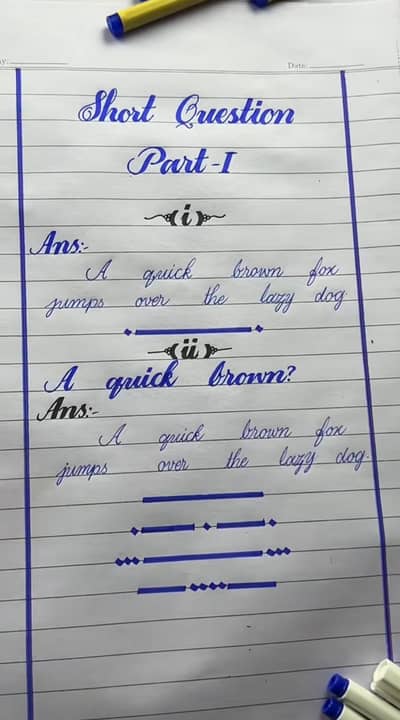 Date:
Short Question
Part-I
(i)
Ans:-
A quick brown fox
jumps over the lazy dog
(ii)
A quick brown?
Ans:-
A quick brown fox
jumps over the lazy dog.